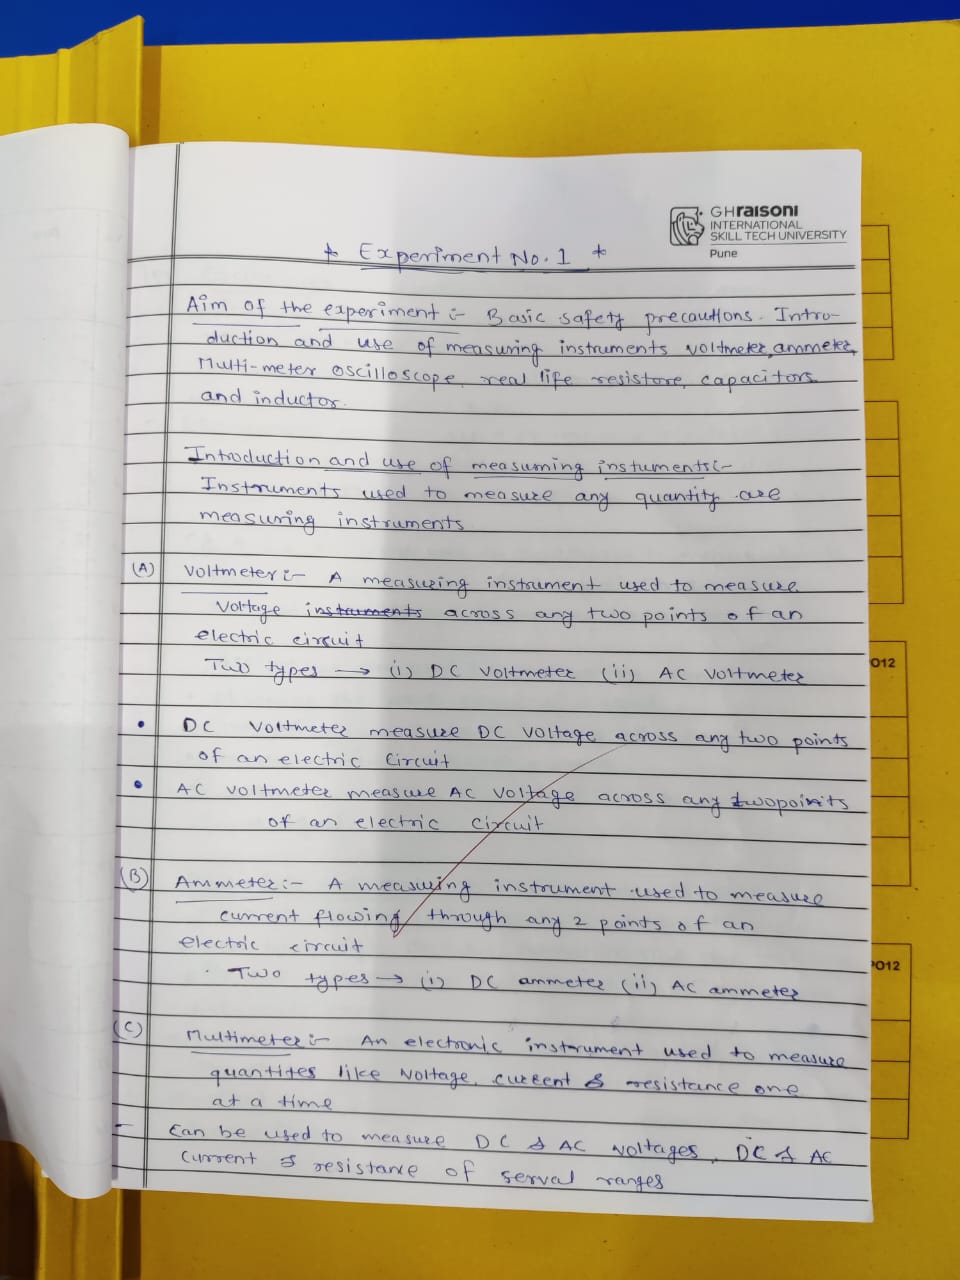 GHraisoni
INTERNATIONAL
SKILL TECH UNIVERSITY
Pune
* Experiment No. 1 *
Aim of the experiment :- Basic safety precautions. Intro-
duction and use of measuring instruments voltmeter, ammeter,
Multi-meter oscilloscope, real life resistore, capacitors
and inductor.
Introduction and use of measuming instuments:-
Instruments used to measure any quantity are
measuring instruments
(A) Voltmeter :- A measuring instrument used to measure
Voltage instruments across any two points of an
electric circuit
Two types → (i) DC voltmeter (ii) AC voltmeter
• DC voltmeter measure DC voltage across any two points
of an electric circuit
• AC voltmeter measure AC voltage across any twopoints
of an electric circuit
(B) Ammeter :- A measuring instrument used to measure
current flowing through any 2 points of an
electric circuit
Two types → (i) DC ammeter (ii) AC ammeter
(C) Multimeter :- An electronic instrument used to measure
quantites like Voltage, current & resistance one
at a time
- Can be used to measure DC & AC voltages, DC & AC
current & resistance of serval ranges
PO12
PO12